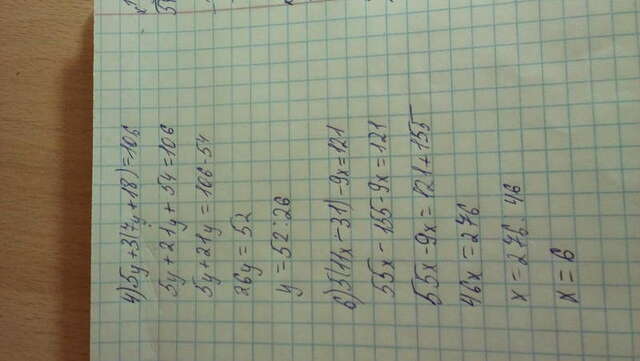 4) 5y + 3(7y + 18) = 106
5y + 21y + 54 = 106
5y + 21y = 106 - 54
26y = 52
y = 52 : 26
6) 5(11x - 31) - 9x = 121
55x - 155 - 9x = 121
55x - 9x = 121 + 155
46x = 276
x = 276 : 46
x = 6